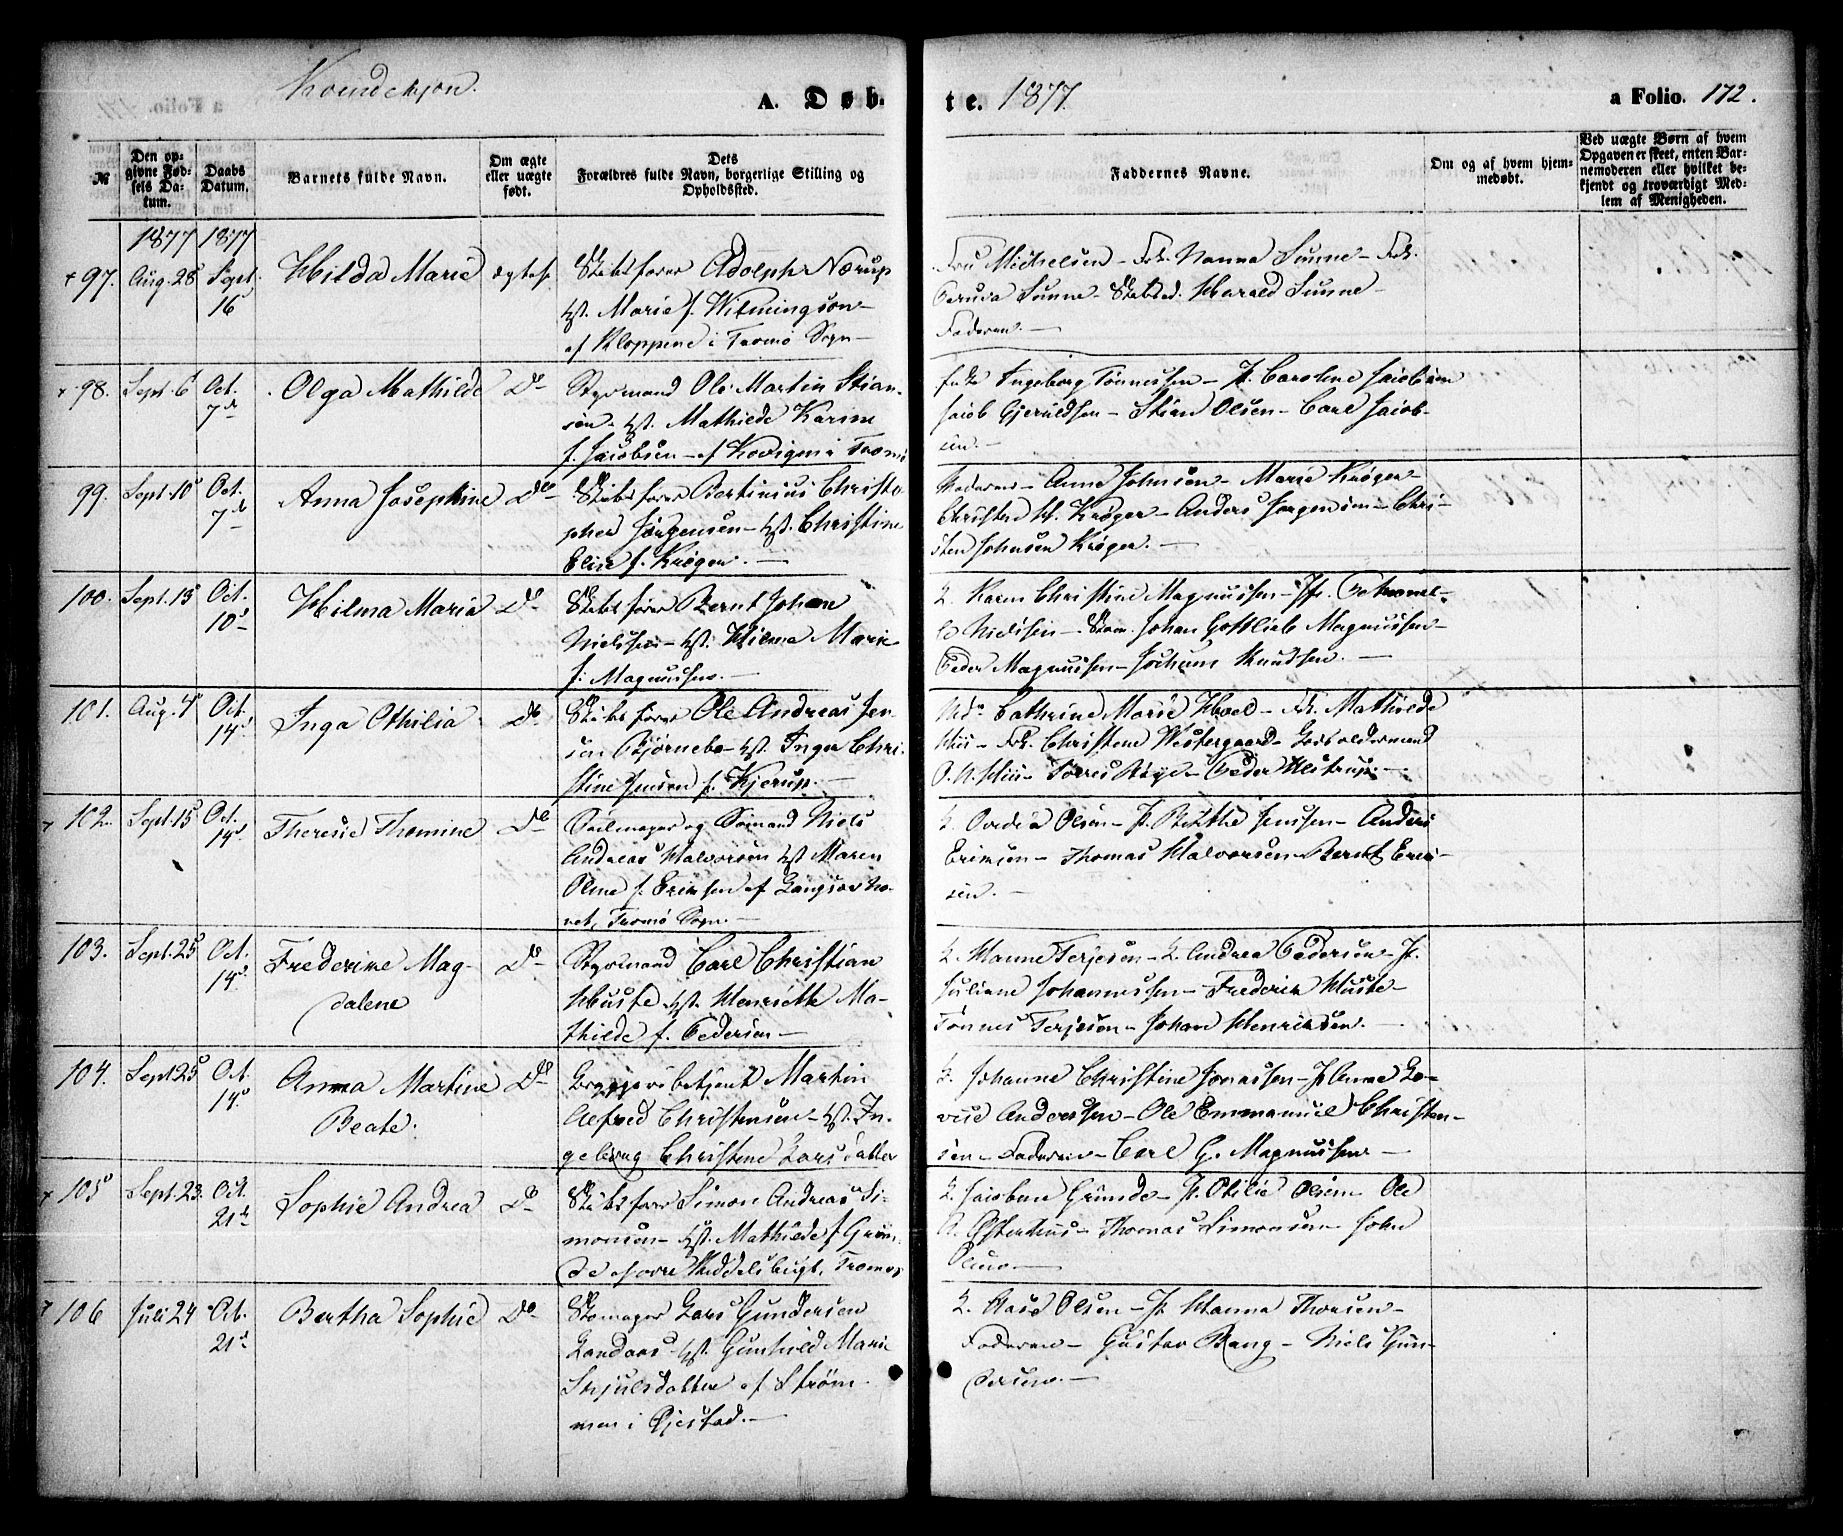 Kvindekjøn.
A. Døb-
te. 1877.
a Folio. 172.
№
Den op-
givne Fød-
sels Da-
tum.
Daabs
Datum.
Barnets fulde Navn.
Om ægte
eller uægte
født.
Dets
Forældres fulde Navn, borgerlige Stilling og
Opholdssted.
Faddernes Navne.
Om og af hvem hjem-
medøbt.
Ved uægte Børn af hvem
Opgaven er skeet, enten Bar-
nemoderen eller hvilket be-
kjendt og troværdigt Med-
lem af Menigheden.
1877 1877
+ 97. Aug. 28 Sept. 16 Hilda Marie ægtef.
Skibsfører Adolph Nærup
Hst. Marie f. Wilmingson
af Kloppene i Tromø Sogn
Fru Michelsen - Frk. Nanna Sunne - Frk.
Sunne - Harald Sunne -
Faderen. -
+ 98. Sept. 6 Oct. 7de Olga Mathilde Do
Styrmand Ole Martin Stian-
sen - Hst. Mathilde Karine
f. Jacobsen - af i Tromø
Ingeborg Tønnessen - P. Caroline Jacobsen
Jacob Gjeruldsen - Stian Olsen - Carl Jacob-
sen. -
99. Sept. 10 Oct. 7de Anna Josephine Do
Skibsfører Bertinius Christo-
pher Jørgensen - Hst. Christine
Elise f. Krøger. -
Moderen - Anne Johnsen - Marie Krøger -
Christen H. Krøger - Anders Jørgensen - Chri-
sten Johnsen Krøger. -
100. Sept. 13 Oct. 10 Hilma Maria Do
Skibsfører Bernt Johan
Nielsen - Hst. Hilma Marie
f. Magnussen. -
K. Karen Christine Magnussen - Pf.
Nielsen - Johan Gottlieb Magnussen -
Peder Magnussen - Jochum Knudsen. -
101. Aug. 4 Oct. 14 Inga Othilia Do
Skibsfører Ole Andreas Jen-
sen Bjørnebo - Hst. Inger Chri-
stine Jensen f. Kjerup. -
Md. Cathrine Marie Hoel - Frk. Mathilde
- Frk. Christene Westergaard -
- Peder Ulstrup. -
+ 102. Sept. 15 Oct. 14 Theresie Thomine Do
Seilmager og Sømand Niels
Andreas Halvorsen Hst Maren
Oline f. Eriksen af
Tromø Sogn. -
K. Olsen - P. Jensen - Anders
Eriksen - Thomas Halvorsen - Berndt Erik-
sen. -
103. Sept. 25 Oct. 14 Frederikke Mag-
dalene Do
Styrmand Carl Christian
Huste Hst. Henriette Ma-
thilde f. Pedersen -
K. Hanne Terjesen - K. Andrea Pedersen - P.
Juliane Johannessen - Frederik Huste -
Tønnes Terjesen - Johan Henriksen. -
104. Sept 25 Oct. 14 Anna Martine
Beate. Do
Martin
Alfred Christensen - Hst. In-
geborg Christine Larsdatter
K. Johanne Christine Jonassen - P. Anne Lo-
vise Anderssen - Ole Emmanuel Christen-
sen - Faderen - Carl G. Magnussen -
+ 105 Sept. 23. Oct. 21de Sophie Andrea Do
Skibsfører Simon Andreas Si-
monsen - Hst. Mathilde f. Grun-
de Tromø
K. Jacobine Grunde - P. Otilie Olsen Ole
A. Østerhus - Thomas Simonsen - John
Olsen -
+ 106 Juli 24 Oct. 21 Bertha Sophie Do
Skomager Lars Gundersen
Landaas Hst. Gunhild Marie
Skjulsdatter af Strøm-
men i Øjestad. -
K. Aase Olsen - P. Hanna Thorsen -
Faderen - Gustav Bang - Niels Gun-
dersen. -